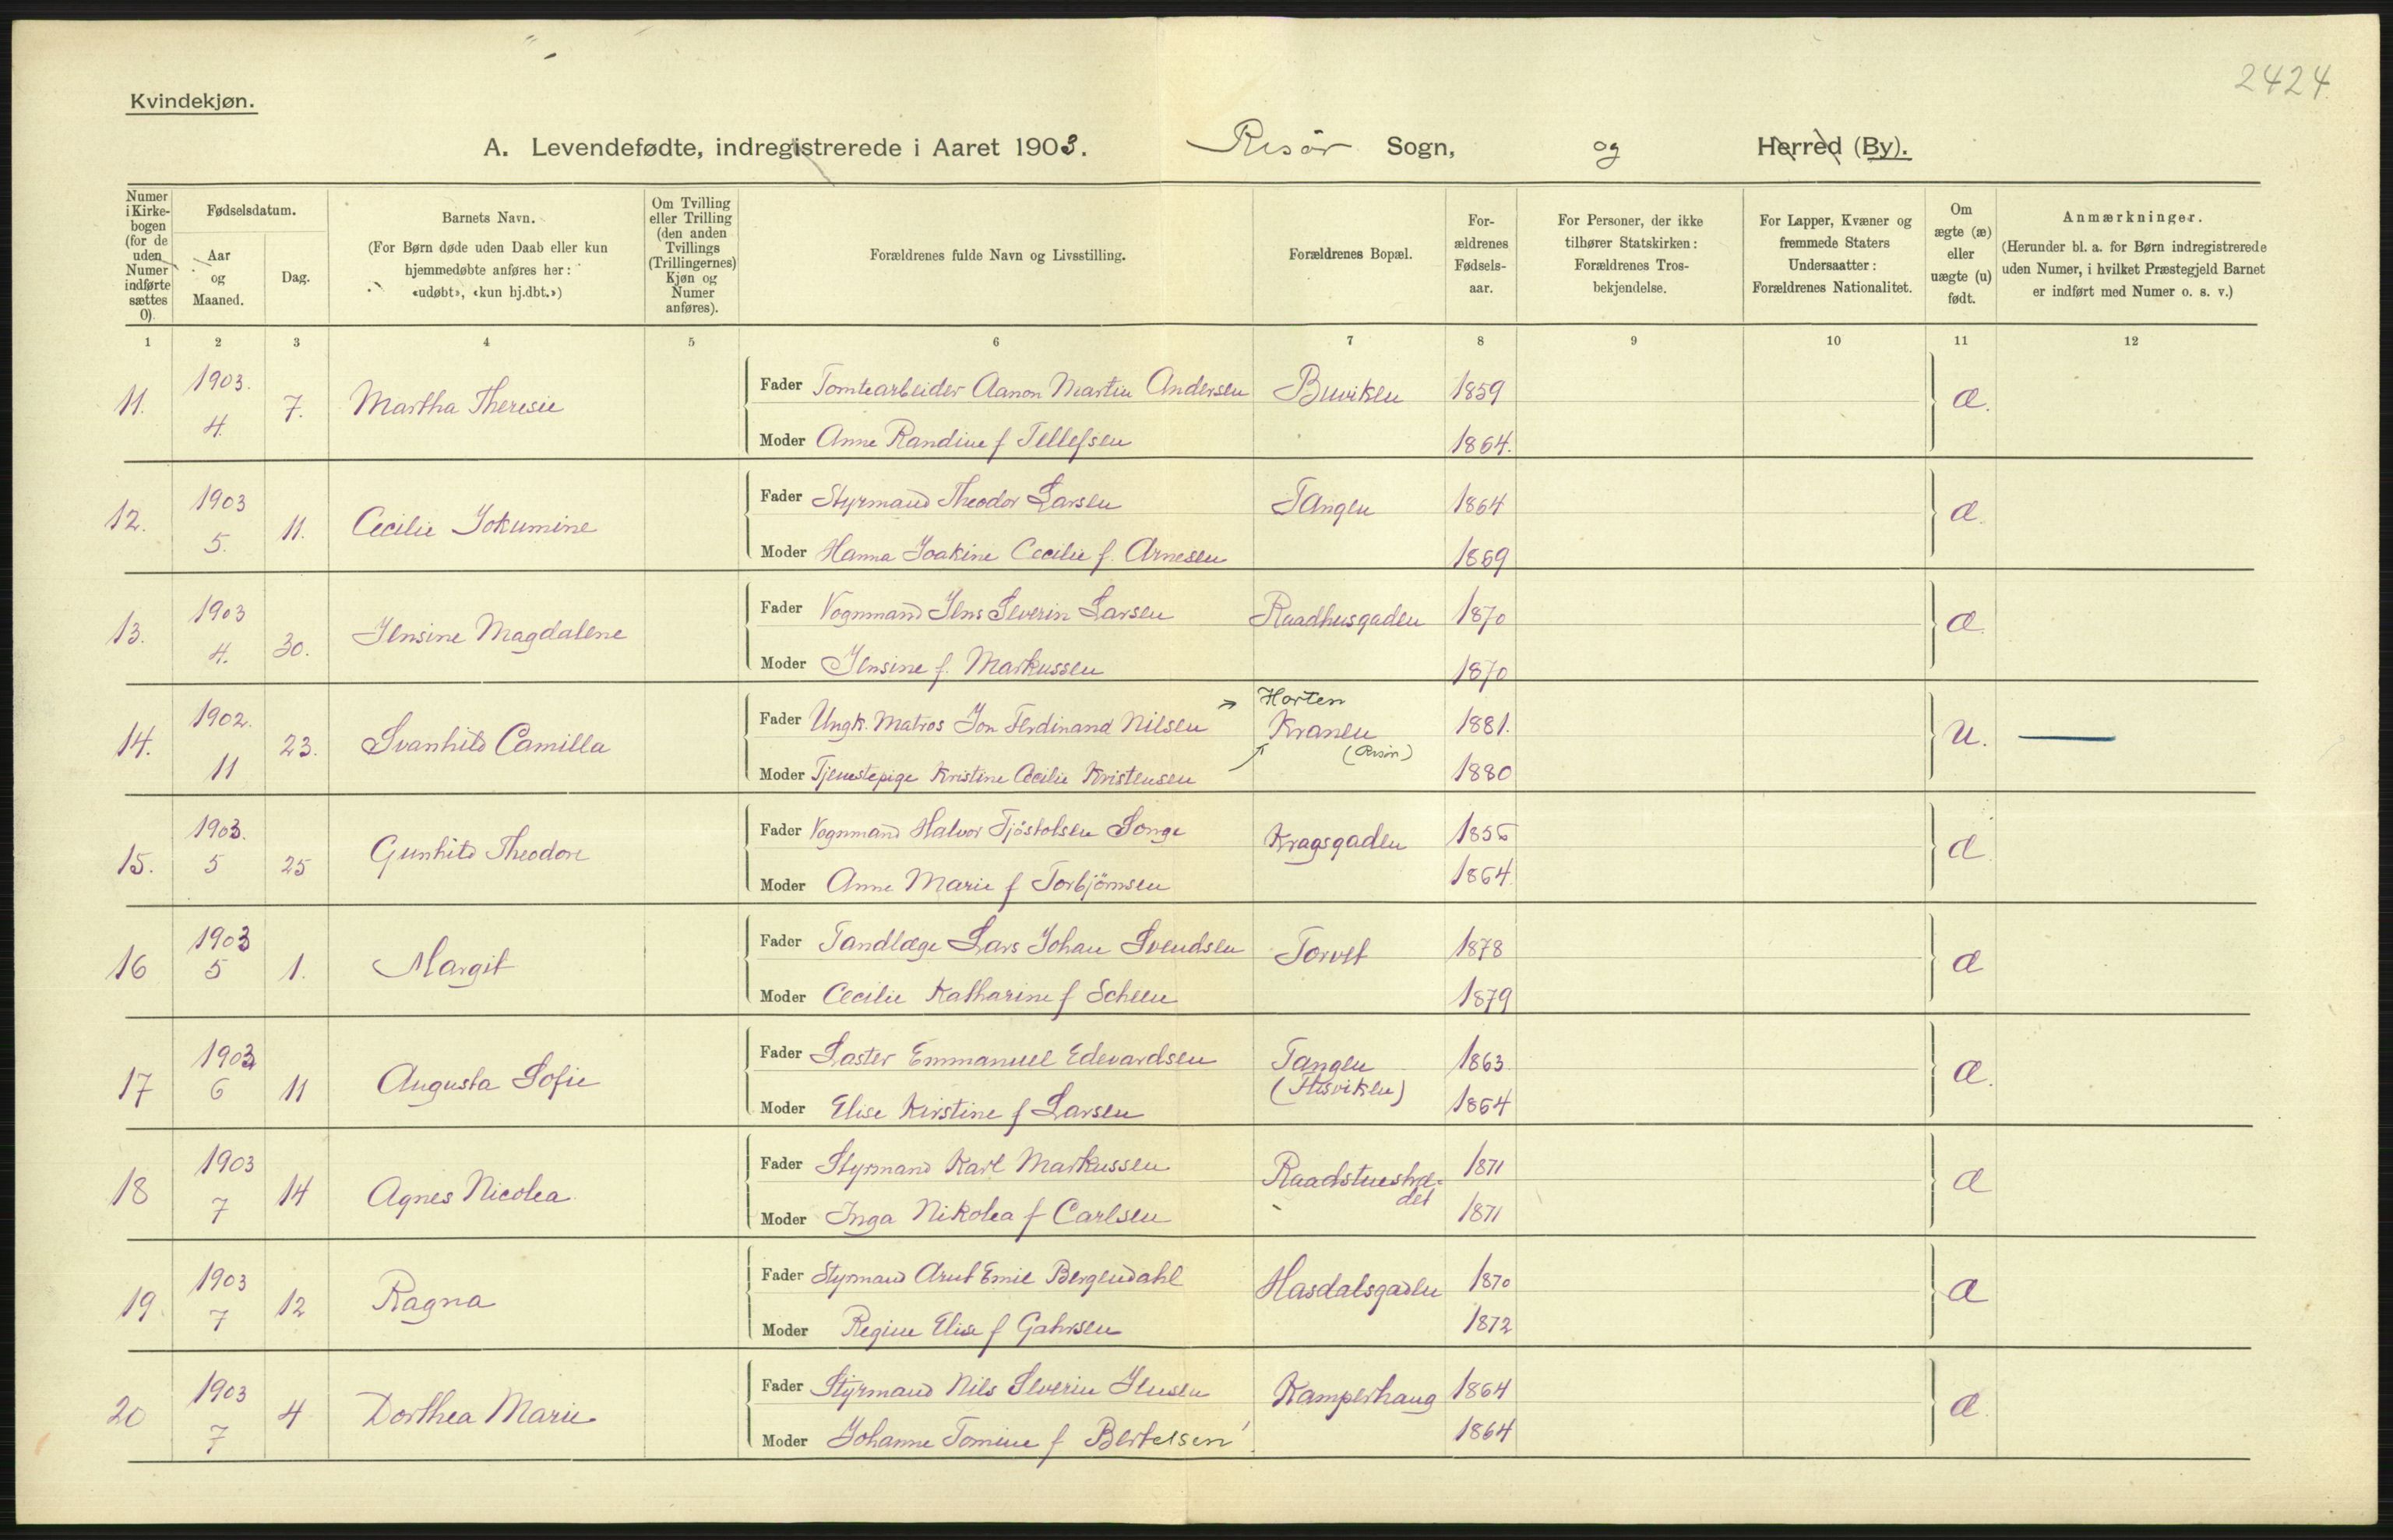 2424
Kvindekjøn.
A. Levendefødte, indregistrerede i Aaret 1903. Risør Sogn, og Herred (By).
Numer i Kirkebogen (for de uden Numer indførte sættes 0).
Fødselsdatum.
Aar og Maaned.
Dag.
Barnets Navn.
(For Børn døde uden Daab eller kun hjemmedøbte anføres her: «udøbt», «kun hj.dbt.»)
Om Tvilling eller Trilling (den anden Tvillings (Trillingernes) Kjøn og Numer anføres).
Forældrenes fulde Navn og Livsstilling.
Forældrenes Bopæl.
For-ældrenes Fødsels-aar.
For Personer, der ikke tilhører Statskirken: Forældrenes Tros-bekjendelse.
For Lapper, Kvæner og fremmede Staters Undersaatter: Forældrenes Nationalitet.
Om ægte (æ) eller uægte (u) født.
Anmærkninger.
(Herunder bl. a. for Børn indregistrerede uden Numer, i hvilket Præstegjeld Barnet er indført med Numer o. s. v.)
1 2 3 4 5 6 7 8 9 10 11 12
11. 1903. 4. 7. Martha Theresie
Fader Tomtearbeider Aanon Martin Andersen Buviken 1859 æ.
Moder Anne Randine f Tellefsen 1864.
12. 1903 5. 11. Cecilie Jokumine
Fader Styrmand Theodor Larsen Tangen 1864 æ.
Moder Hanna Joakine Cecilie f. Arnesen 1869
13. 1903 4. 30. Jensine Magdalene
Fader Vognmand Jens Severin Larsen Raadhusgaden 1870 æ.
Moder Jensine f. Markussen 1870
14. 1902. 11 23. Svanhild Camilla
Fader Ungk. Matros Jon Ferdinand Nilsen Horten 1881. u.
Kranen (Risør)
Moder Tjenestepige Kristine Cecilie Kristensen 1880
15. 1903. 5 25 Gunhild Theodore
Fader Vognmand Halvor Tjöstolsen Songe Kragsgaden 1856 æ.
Moder Anne Marie f Torbjörnsen 1864.
16 1903 5 1. Margit
Fader Tandlæge Lars Johan Svendsen Torvet 1878 æ
Moder Cecilie Katharine f Scheen 1879
17 1903 6 11 Augusta Sofie
Fader Laster Emmanuel Edevardsen Tangen 1863 æ.
(Flisviken)
Moder Elise Kirstine f Larsen 1864
18 1903 7 14 Agnes Nicolea
Fader Styrmand Karl Markussen Raadstuestræ-det 1871 æ
Moder Inga Nikolea f Carlsen 1871
19. 1903 7 12 Ragna
Fader Styrmand Arnt Emil Bergendahl Hasdalsgaden 1870 æ
Moder Regine Elise f Gahrsen 1872
20 1903 7 4 Dorthea Marie
Fader Styrmand Nils Severin Jensen Kamperhaug 1864 æ.
Moder Johanne Tomine f Bertelsen 1864